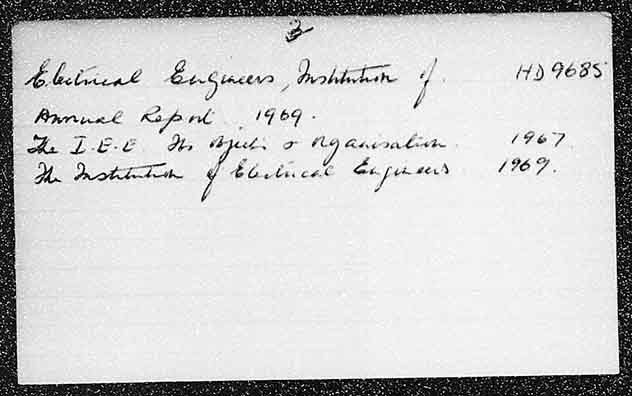 2
Electrical Engineers, Institution of. HD9685
Annual Report. 1969.
The I.E.E. Its objects & organisation. 1967.
The Institution of Electrical Engineers 1969.